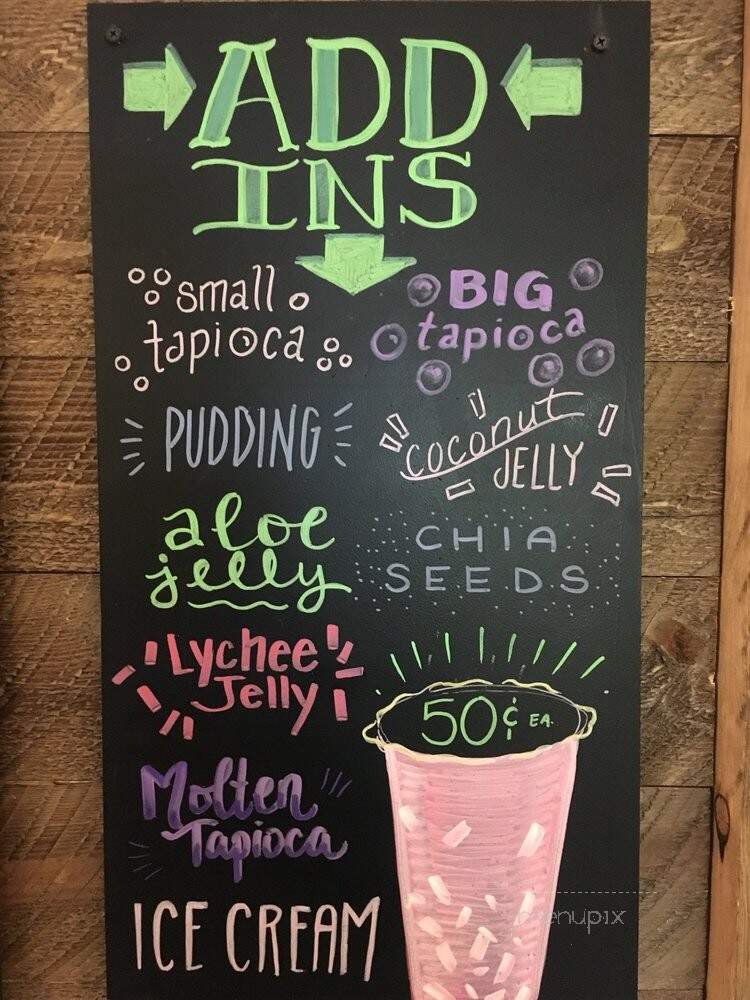 ADD
INS
small
tapioca
BIG
tapioca
PUDDING
coconut
JELLY
aloe
jelly
CHIA
SEEDS
Lychee
Jelly
50¢ EA.
Molten
Tapioca
ICE CREAM
menupix